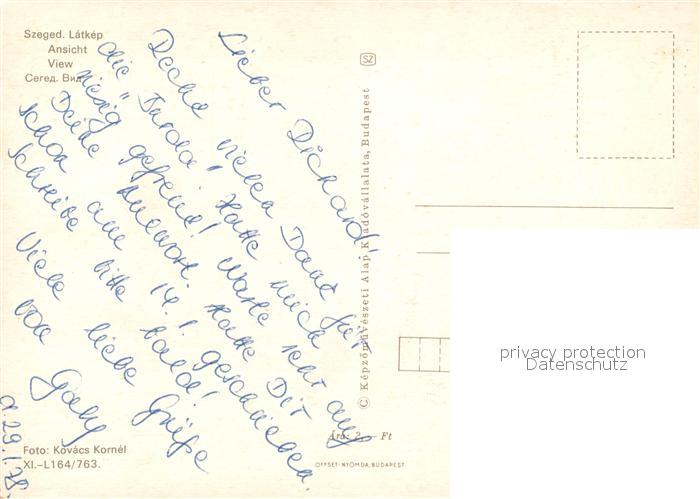 Szeged. Látkép
Ansicht
View
Сегед. Вид
Lieber Richard!
Recht vielen Dank für
die "Bunda". Hatte mich
riesig gefreut! Warte jetzt auf
Deine Antwort. Hatte Dir
schon am 14. 1. geschrieben.
Schreibe bitte bald!
Viele liebe Grüße
von Gaby
d. 29.1.78
SZ
© Képzőművészeti Alap Kiadóvállalata, Budapest
privacy protection
Datenschutz
Ára: 2,— Ft
Foto: Kovács Kornél
XI.–L164/763.
OFFSET-NYOMDA, BUDAPEST